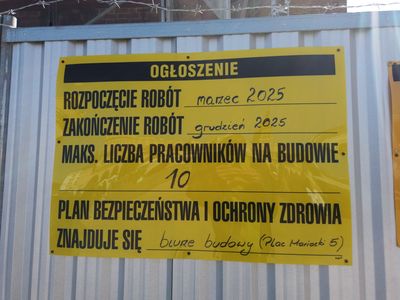 OGŁOSZENIE
ROZPOCZĘCIE ROBÓT marzec 2025
ZAKOŃCZENIE ROBÓT grudzień 2025
MAKS. LICZBA PRACOWNIKÓW NA BUDOWIE
10
PLAN BEZPIECZEŃSTWA I OCHRONY ZDROWIA
ZNAJDUJE SIĘ biuro budowy (Plac Mariacki 5)